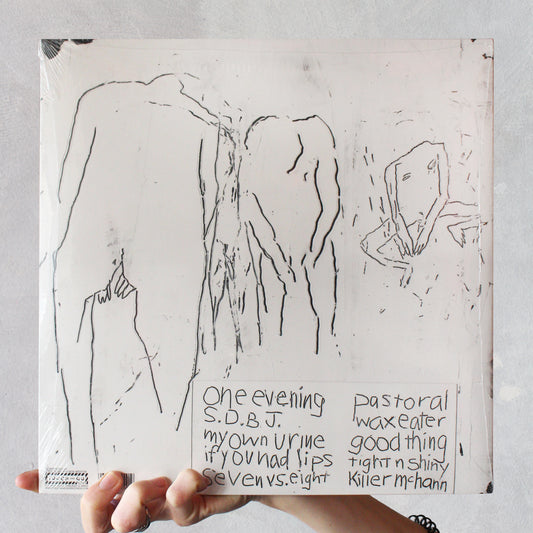 one evening
S.D.B.J.
my own urine
if you had lips
seven vs. eight
pastoral
waxeater
good thing
tight n shiny
Killer mchann